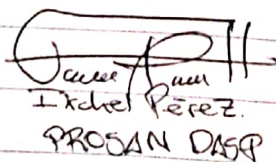 Ixchel Pérez.
PROSAN DASP